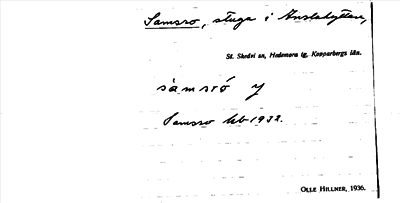 Samsro, stuga i Anstahyttan,
St. Skedvi sn, Hedemora tg, Kopparbergs län.
sàmsró y
Samsro kb 1932.
OLLE HILLNER, 1936.